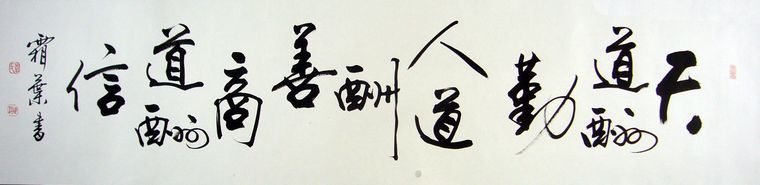 天道酬勤人道酬善商道酬信
霜葉書